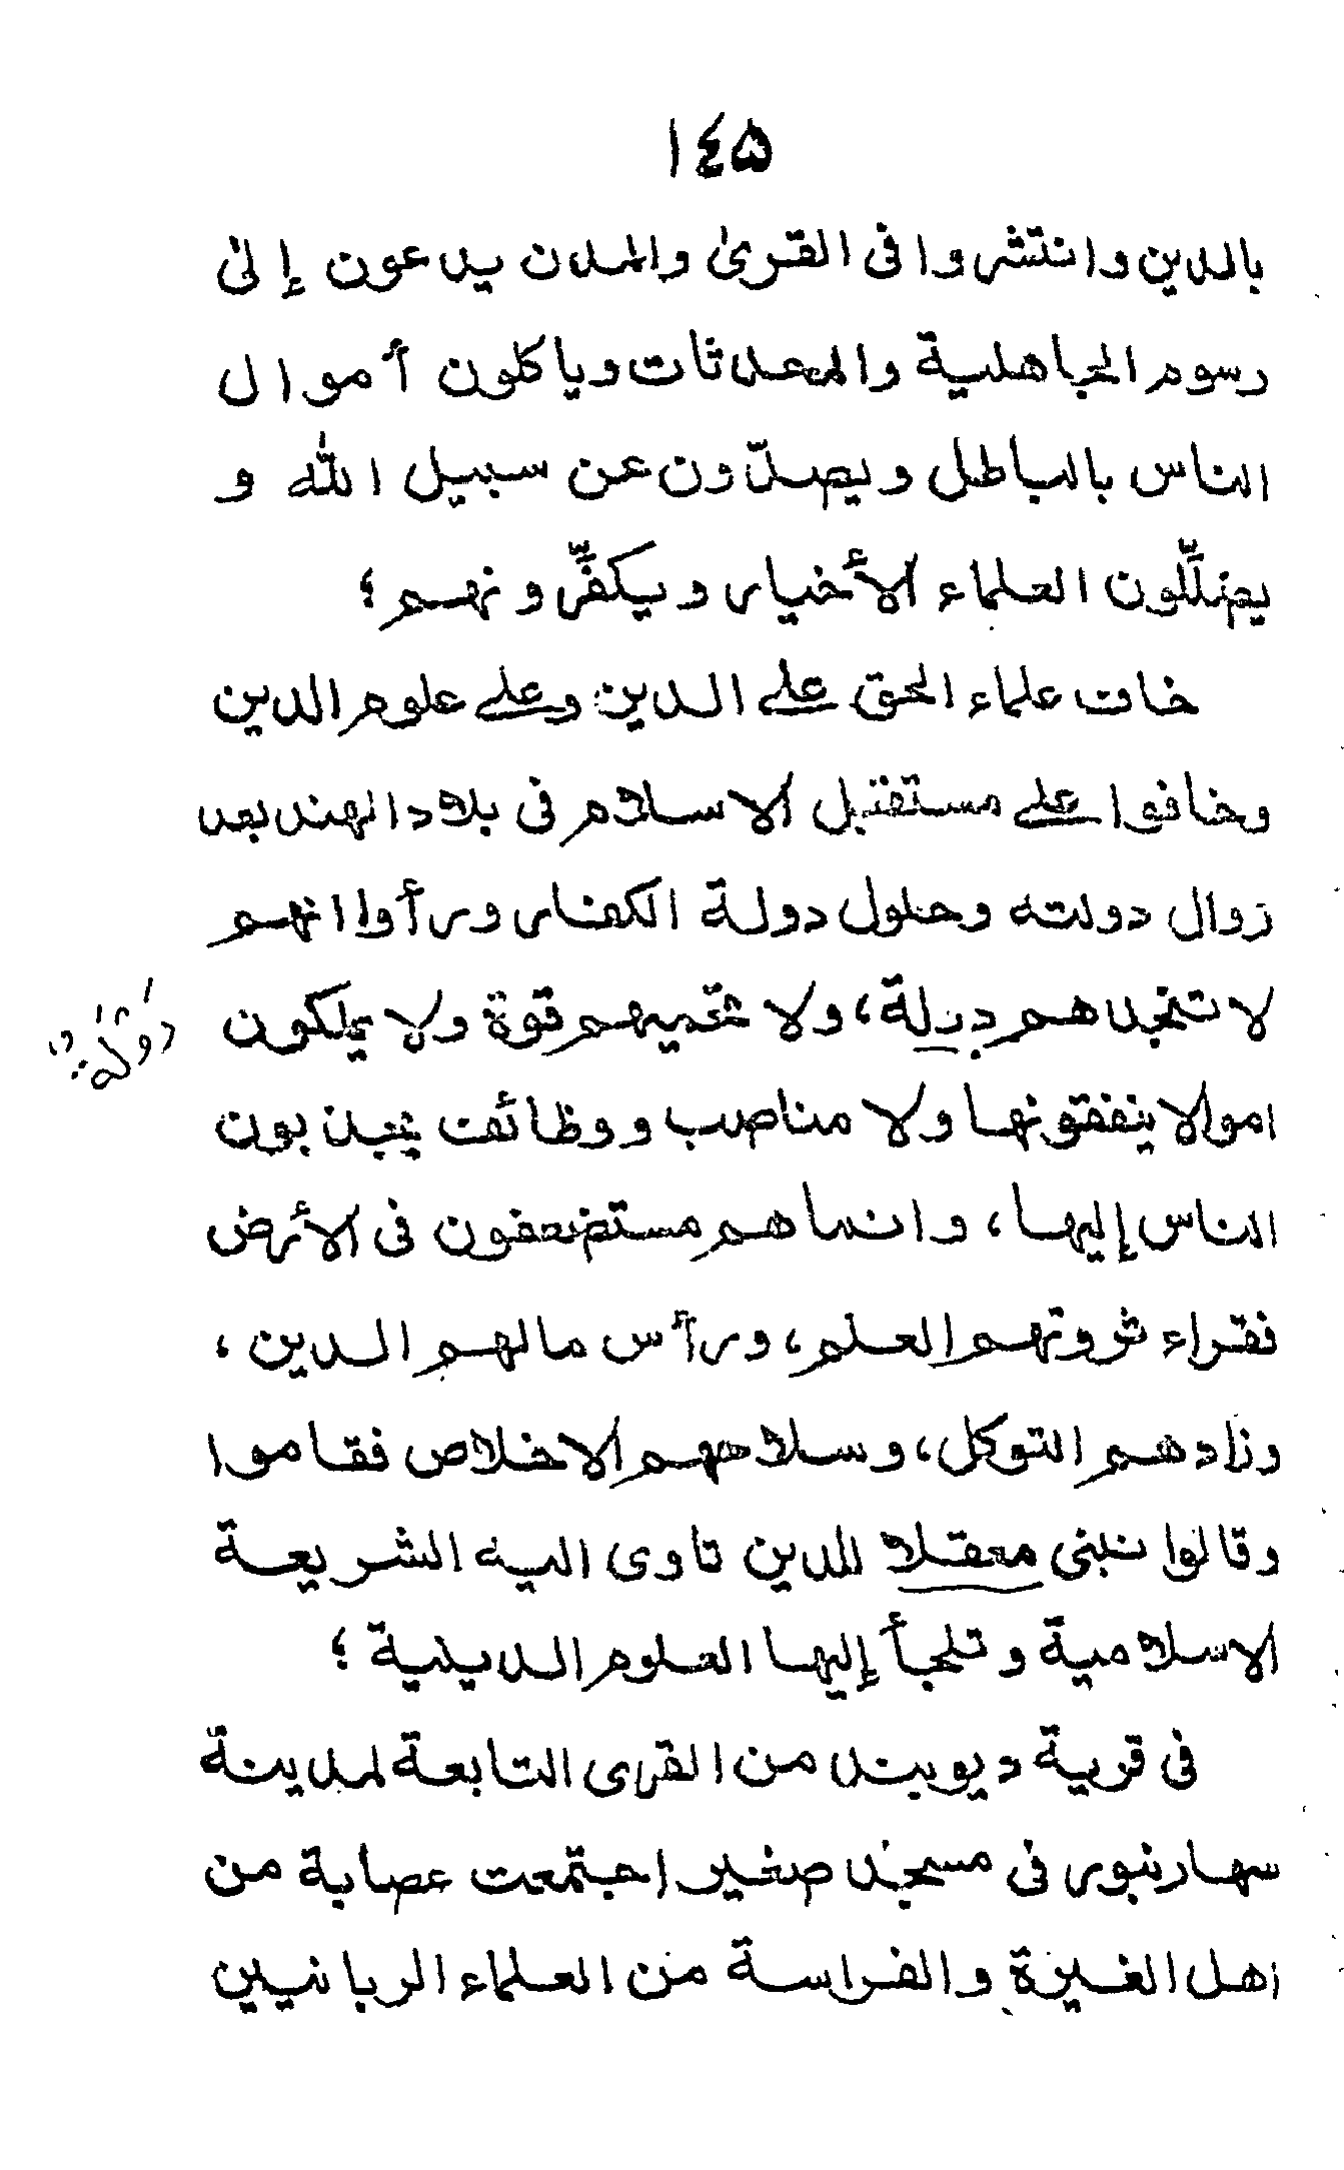 ١٤۵
بالدين وانتشروا فى القرىٰ والمدن يدعون إلىٰ
رسوم الجاهلية والمحدثات وياكلون أموال
الناس بالباطل ويصدّون عن سبيل الله و
يضلِّلون العلماء الأخيار ويكفِّرونهم؛
خاف علماء الحق على الدين وعلى علوم الدين
وخافوا على مستقبل الاسلام فى بلاد الهند بعد
زوال دولته وحلول دولة الكفار ورأوا انهم
لا تنجدهم دولة، ولا تحميهم قوة ولا يملكون
دولة
اموالا ينفقونها ولا مناصب ووظائف يجذبون
الناس إليها، وانما هم مستضعفون فى الأرض
فقراء ثروتهم العلم، ورأس مالهم الدين،
وزادهم التوكل، وسلاحهم الاخلاص فقاموا
وقالوا نبنى معقلا للدين تاوى اليه الشريعة
الاسلامية وتلجأ إليها العلوم الدينية؛
فى قرية ديوبند من القرى التابعة لمدينة
سهارنبور فى مسجد صغير اجتمعت عصابة من
اهل الغيرة والفراسة من العلماء الربانيين